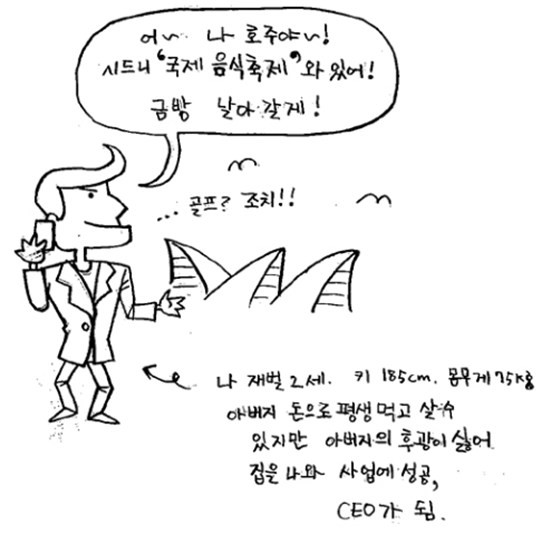 어~ 나 호주야~!
시드니 '국제 음식축제'와 있어!
금방 날아갈게!
... 골프? 조치!!
나 재벌 2세. 키 185cm. 몸무게 75kg
아버지 돈으로 평생 먹고 살 수
있지만 아버지의 후광이 싫어
집을 나와 사업에 성공,
CEO가 됨.